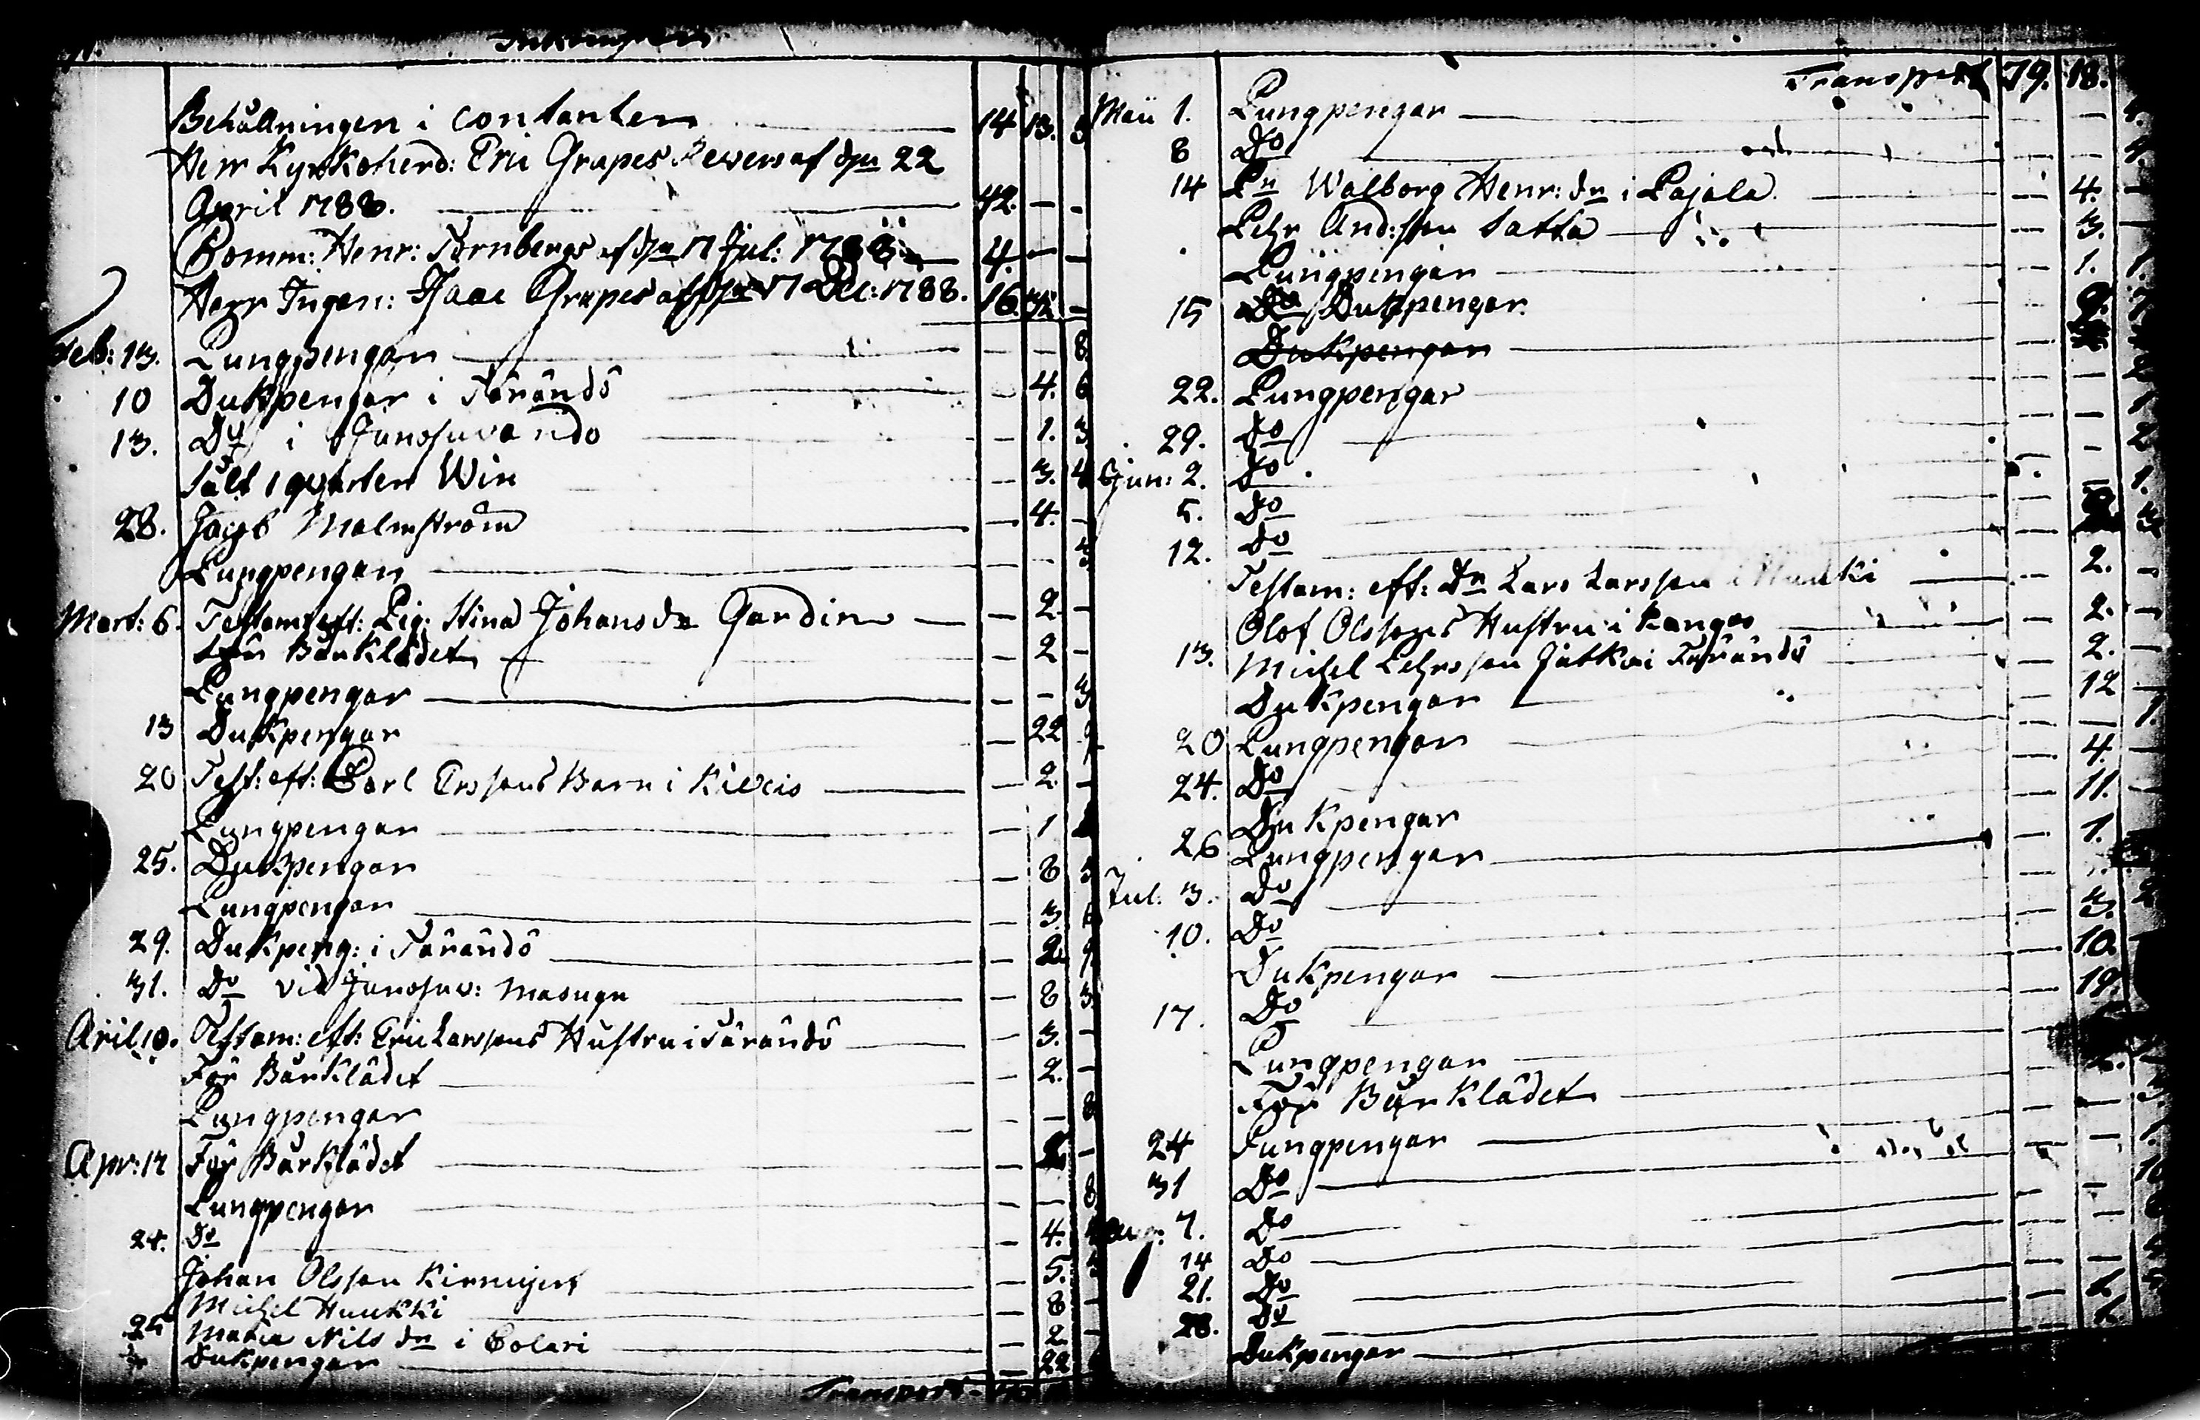 Inkomsten
Behållningen i contanten 14 13.
Herr Kyrkoherd: Eric Grapes Revers af den 22
April 1788. 42. — -
Comm: Henr: Törnbergs af den 17 Jul: 1788. 4. — —
Herr Ingen: Isaac Grapes af den 17 Dec: 1788. 16. 32 —
Feb: 13. Pungpengar — — 8
10 Dukpengar i Tärändö 4. 6
13. Do i Junosuvando — 1. 3
Sålt 1 qvarter Win 3. 4
28. Jacob Malmström — 4. —
Pungpengar 3
Mart: 6. Testam: eft: Pig: Stina Johansdr Gardin — 2. —
För Bårklädet 2 —
Pungpengar — — 3
13 Dukpengar — 22
20 Test: eft: Carl Erssons Barn i Kieveis — 2. —
Pungpengar — 1
25. Dukpengar — 8 3
Pungpengar — 3.
29. Dukpeng: i Tärändö — 2. 9
31. Do vid Junosuv: Masugn — 8 3
Aril. 10. Testam: eft: Eric Larssons Hustru i Tärändö — 3. —
För Bårklädet — 2. —
Pungpengar — 8
Apr: 17 För Bårklädet — —
Pungpengar — — 8
24. Do — 4.
Johan Olsson Kirmujerf — 5.
Michel Huukki — 8 —
25 Maria Nils dr i Colari — 2 —
Dukpengar — 22
Transport
Transport 79. 18.
Maii 1. Pungpengar — — 4.
8 Do — — 4.
14 Pn Walborg Henr: dr i Pajala. — 4. —
Pehr And:sson Satta — 3. —
Pungpengar — 1. 1.
15 Do Dukpengar.
Dukpengar
22. Pungpengar — —
29. Do — —
Jun: 2. Do
5. Do — 1.
12. Do
Testam: eft: Dn Lars Larsson i Huuki — 2. —
Olof Olssons Hustru i Kangos — 2. —
13. Michel Pehrsson Jatko i Tärändö — 2. —
Dukpengar — 12 —
20 Pungpengar — — 1.
24. Do — 4. —
Dukpengar — 11. —
26 Pungpengar — 1.
Jul. 3. Do
10. Do — 3.
Dukpengar — 10.
17. Do — 19.
Pungpengar
För Bårklädet
24 Pungpengar — — 1.
31 Do — — 10
Aug: 7. Do — —
14 Do — —
21. Do
28. Do
Dukpengar